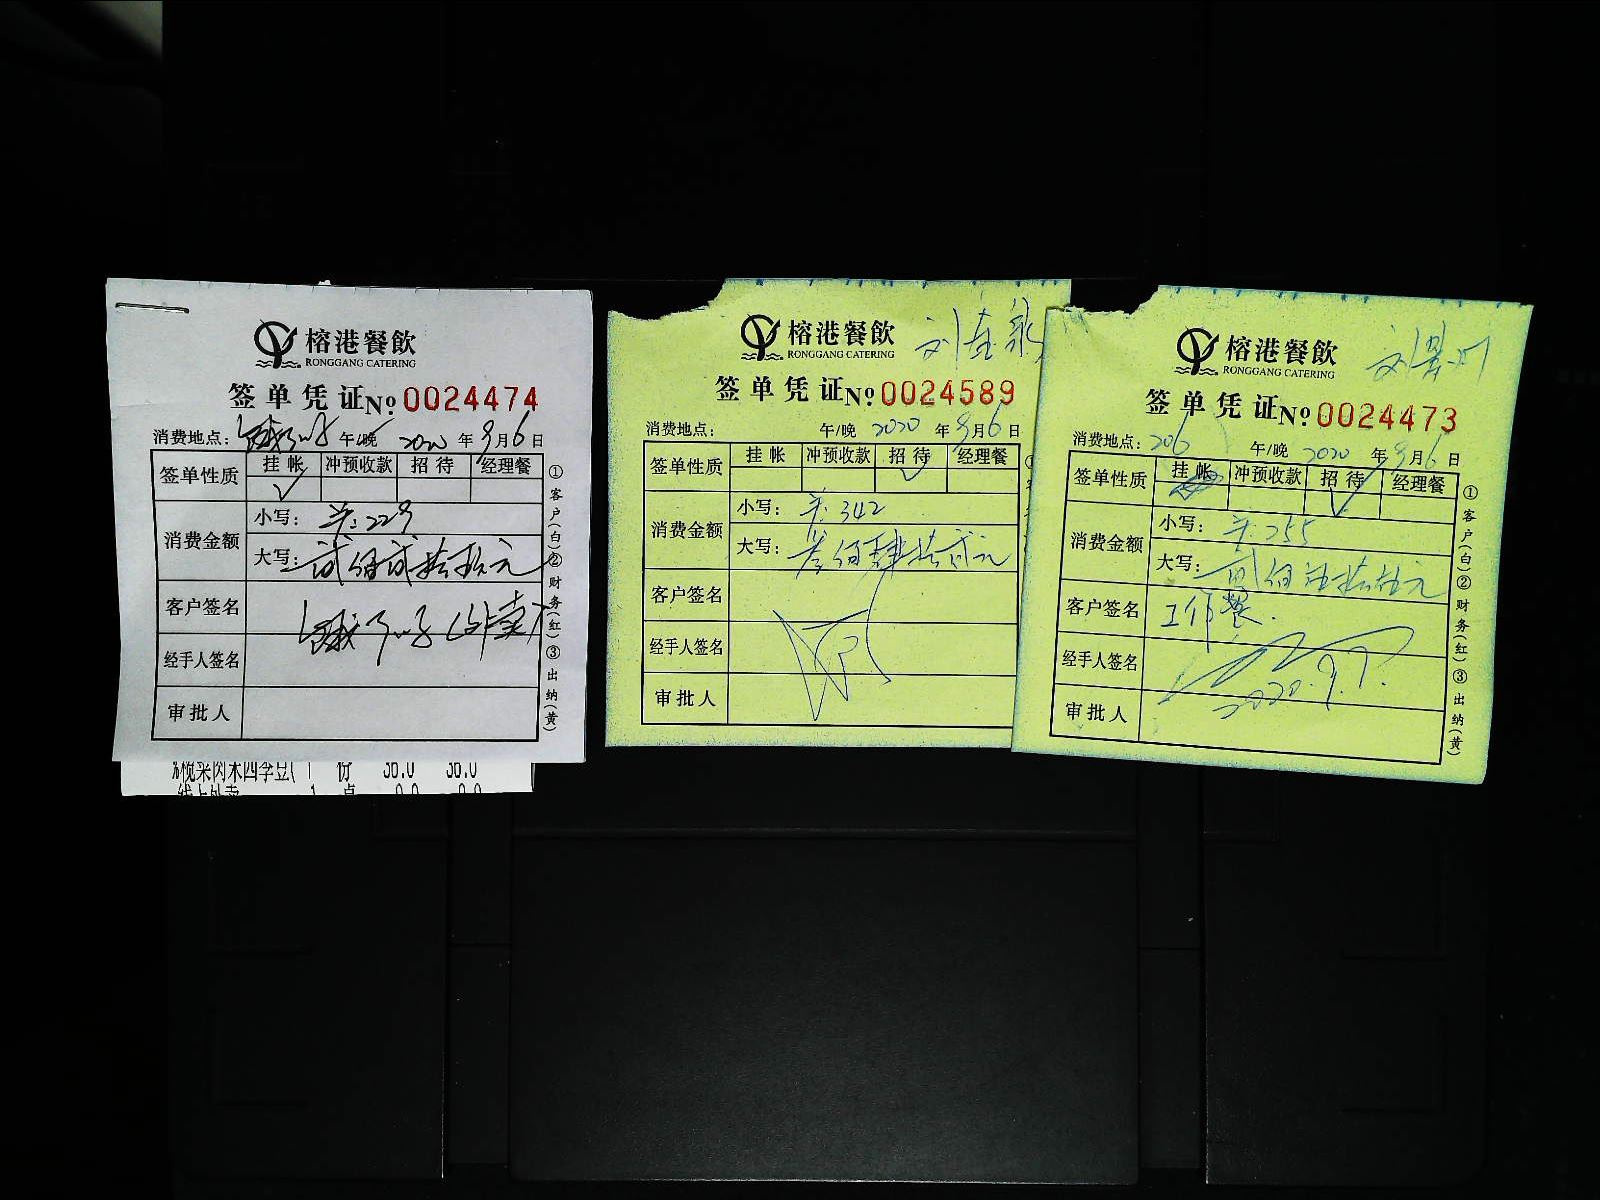 榕港餐飲
RONGGANG CATERING
签单凭证 No 0024474
消费地点: 饿了么 午/晚 2020 年 9 月 6 日
签单性质 挂帐 冲预收款 招待 经理餐
✓
消费金额
小写: 羊: 229
大写: 贰佰贰拾玖元
客户签名 饿了么(外卖)
经手人签名
审批人
①客户(白)②财务(红)③出纳(黄)
榄菜肉末四季豆( 1 份 36.0 36.0
榕港餐飲
RONGGANG CATERING
签单凭证 No 0024589
消费地点: 午/晚 2020 年 9 月 6 日
签单性质 挂帐 冲预收款 招待 经理餐
✓
消费金额
小写: 羊: 342
大写: 叁佰肆拾贰元
客户签名
经手人签名
审批人
榕港餐飲
RONGGANG CATERING
签单凭证 No 0024473
消费地点: 206 午/晚 2020 年 9 月 6 日
签单性质 挂帐 冲预收款 招待 经理餐
✓
消费金额
小写: 羊: 255
大写: 贰佰伍拾伍元
客户签名 工作餐.
经手人签名
2020.9.7.
审批人
①客户(白)②财务(红)③出纳(黄)